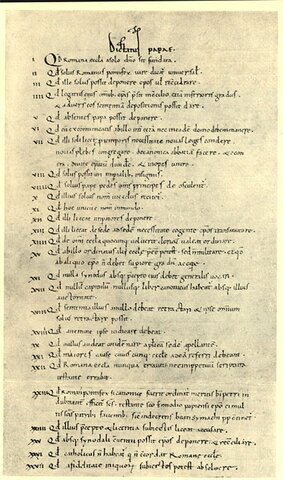 Dictatus papae.
I Qd Romana eccla a solo dno sit fundata.
II Qd solus Romanus pontifex iure dicat universal.
III Qd ille solus possit deponere epos ul reciliare.
IIII Qd legatus eius omib. epis psit in cilio etia inferioris gradus
& adversus eos sententia depositionis possit dare.
V Qd absentes papa possit deponere.
VI Qd cu excomunicatis ab illo int cetera nec in eade domo debem manere.
VII Qd illi soli licet p temporis necessitate novas leges condere
novas plebes congregare. de canonica abbatia facere. & e con
tra. divite epatu dividere. & inopes unire.
VIII Qd solus possit uti imperialib. insigniis.
VIIII Qd solius pape pedes oms principes deosculent.
X Qd illius solius nom in ecclis recitet.
XI Qd hoc unicu. e nom in mundo.
XII Qd illi liceat imperatores deponere.
XIII Qd illi liceat de sede ad sede necessitate cogente epos transmutare.
XIIII Qd de omi eccla quocuq voluerit clericu valeat ordinare.
XV Qd ab illo ordinatus alii eccle peesse potest sed militare. & qd
ab aliquo epo n debet superiore gradu accipe.
XVI Qd nulla synodus absq pcepto eius debet generalis vocari.
XVII Qd nullu capitulu nullusq liber canonicus habeat absq illius
auctoritate.
XVIII Qd sententia illius a nullo debeat retractari & ipse omium
solus retractare possit.
XVIIII Qd a nemine ipse iudicari debeat.
XX Qd nullus audeat condemnare aplica sede apellante.
XXI Qd maiores cause cuiuscunq eccle ad ea referri debeant.
XXII Qd Romana eccla nunqua erravit nec inppetuu scriptura
testante errabit.
XXIII Qd Romanus pontifex si canonice fuerit ordinatus meritis b. petri in
dubitanter efficit scs. testante sco Ennodio papiensi epo ei multis
scis patrib. faventib. sic in decretis b. Symachi pp continet.
XXIIII Qd illius pcepto & licentia subiectis liceat accusare.
XXV Qd absq synodali conventu possit epos deponere & reciliare.
XXVI Qd catholicus n habeat q n cordat Romane eccle.
XXVII Qd a fidelitate iniquoru subiectos potest absolvere.